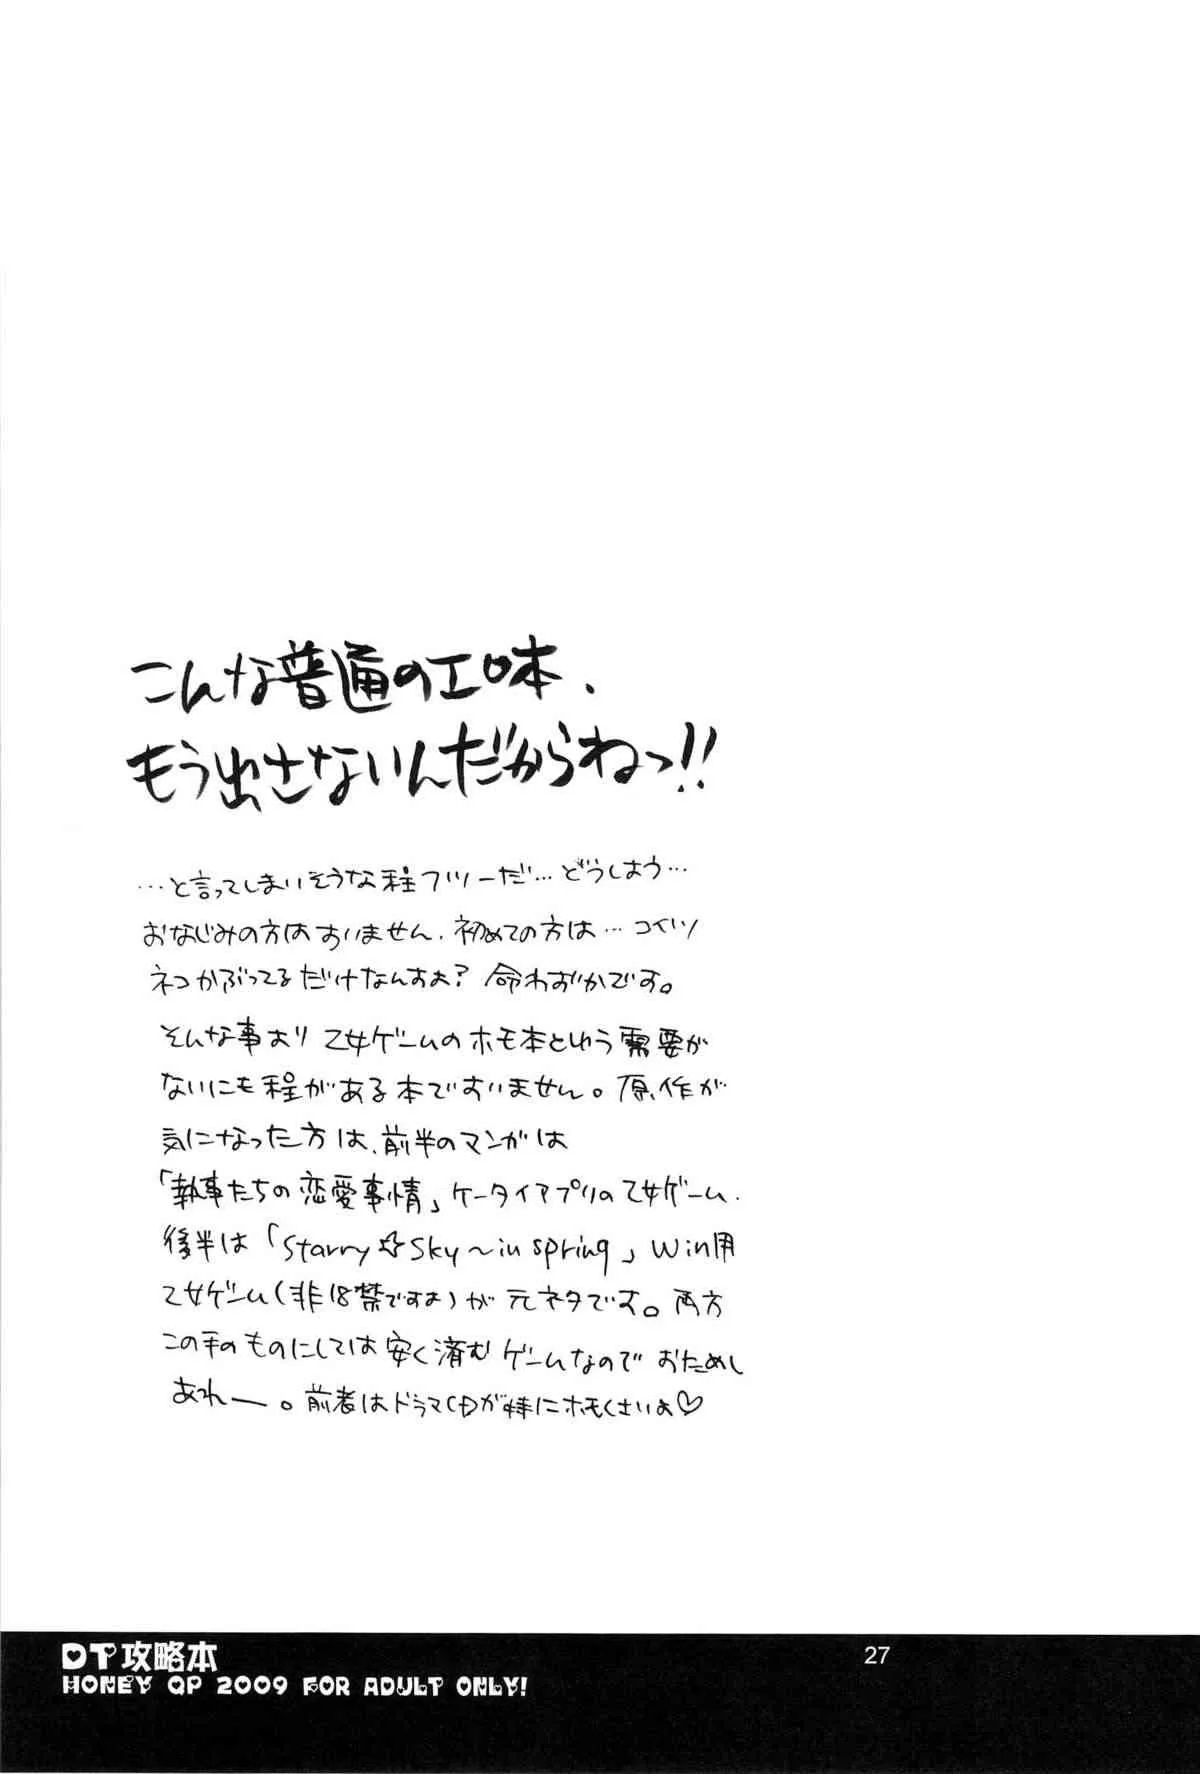 こんな普通のエロ本、
もう出さないんだからねっ!!
…と言ってしまいそうな程フツーだ…どうしよう…
おなじみの方はすいません、初めての方は…コイツ
ネコかぶってるだけなんすよ? 命わずかです。
そんな事より乙女ゲームのホモ本という需要が
ないにも程がある本ですいません。原作が
気になった方は、前半のマンガは
「執事たちの恋愛事情」ケータイアプリの乙女ゲーム、
後半は「Starry☆Sky~in spring」Win用
乙女ゲーム(非18禁ですよ)が元ネタです。両方
この手のものにしては安く済むゲームなのでおためし
あれー。前者はドラマCDが特にホモくさいよ♡
DT攻略本
HONEY QP 2009 FOR ADULT ONLY!
27